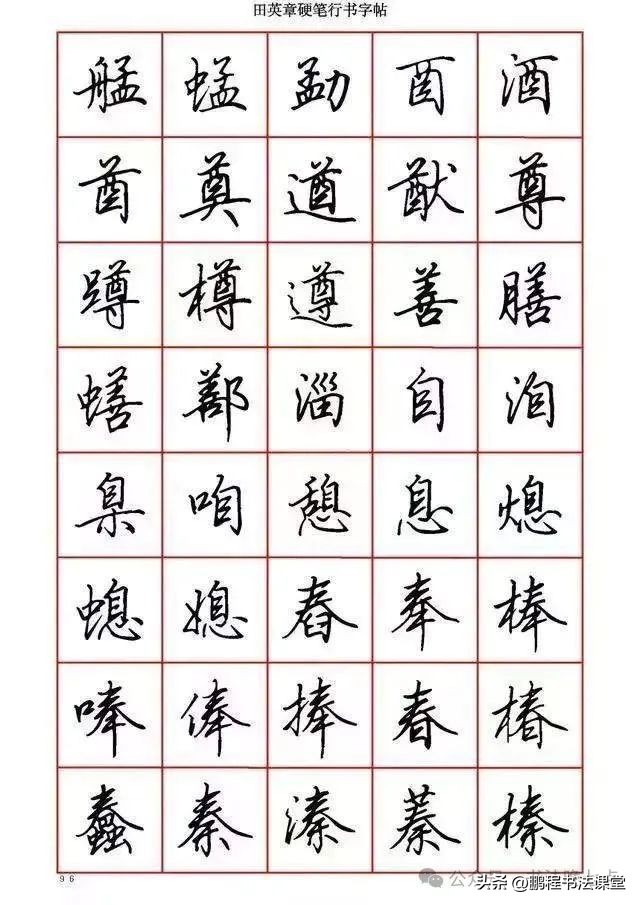 田英章硬笔行书字帖
艋 蜢 勐 酉 酒
酋 奠 遒 猷 尊
蹲 樽 遵 善 膳
蟮 鄯 淄 自 洎
臬 咱 憩 息 熄
螅 媳 舂 奉 棒
唪 俸 捧 春 椿
蠢 秦 溱 蓁 榛
96
头条 @鹏程书法课堂